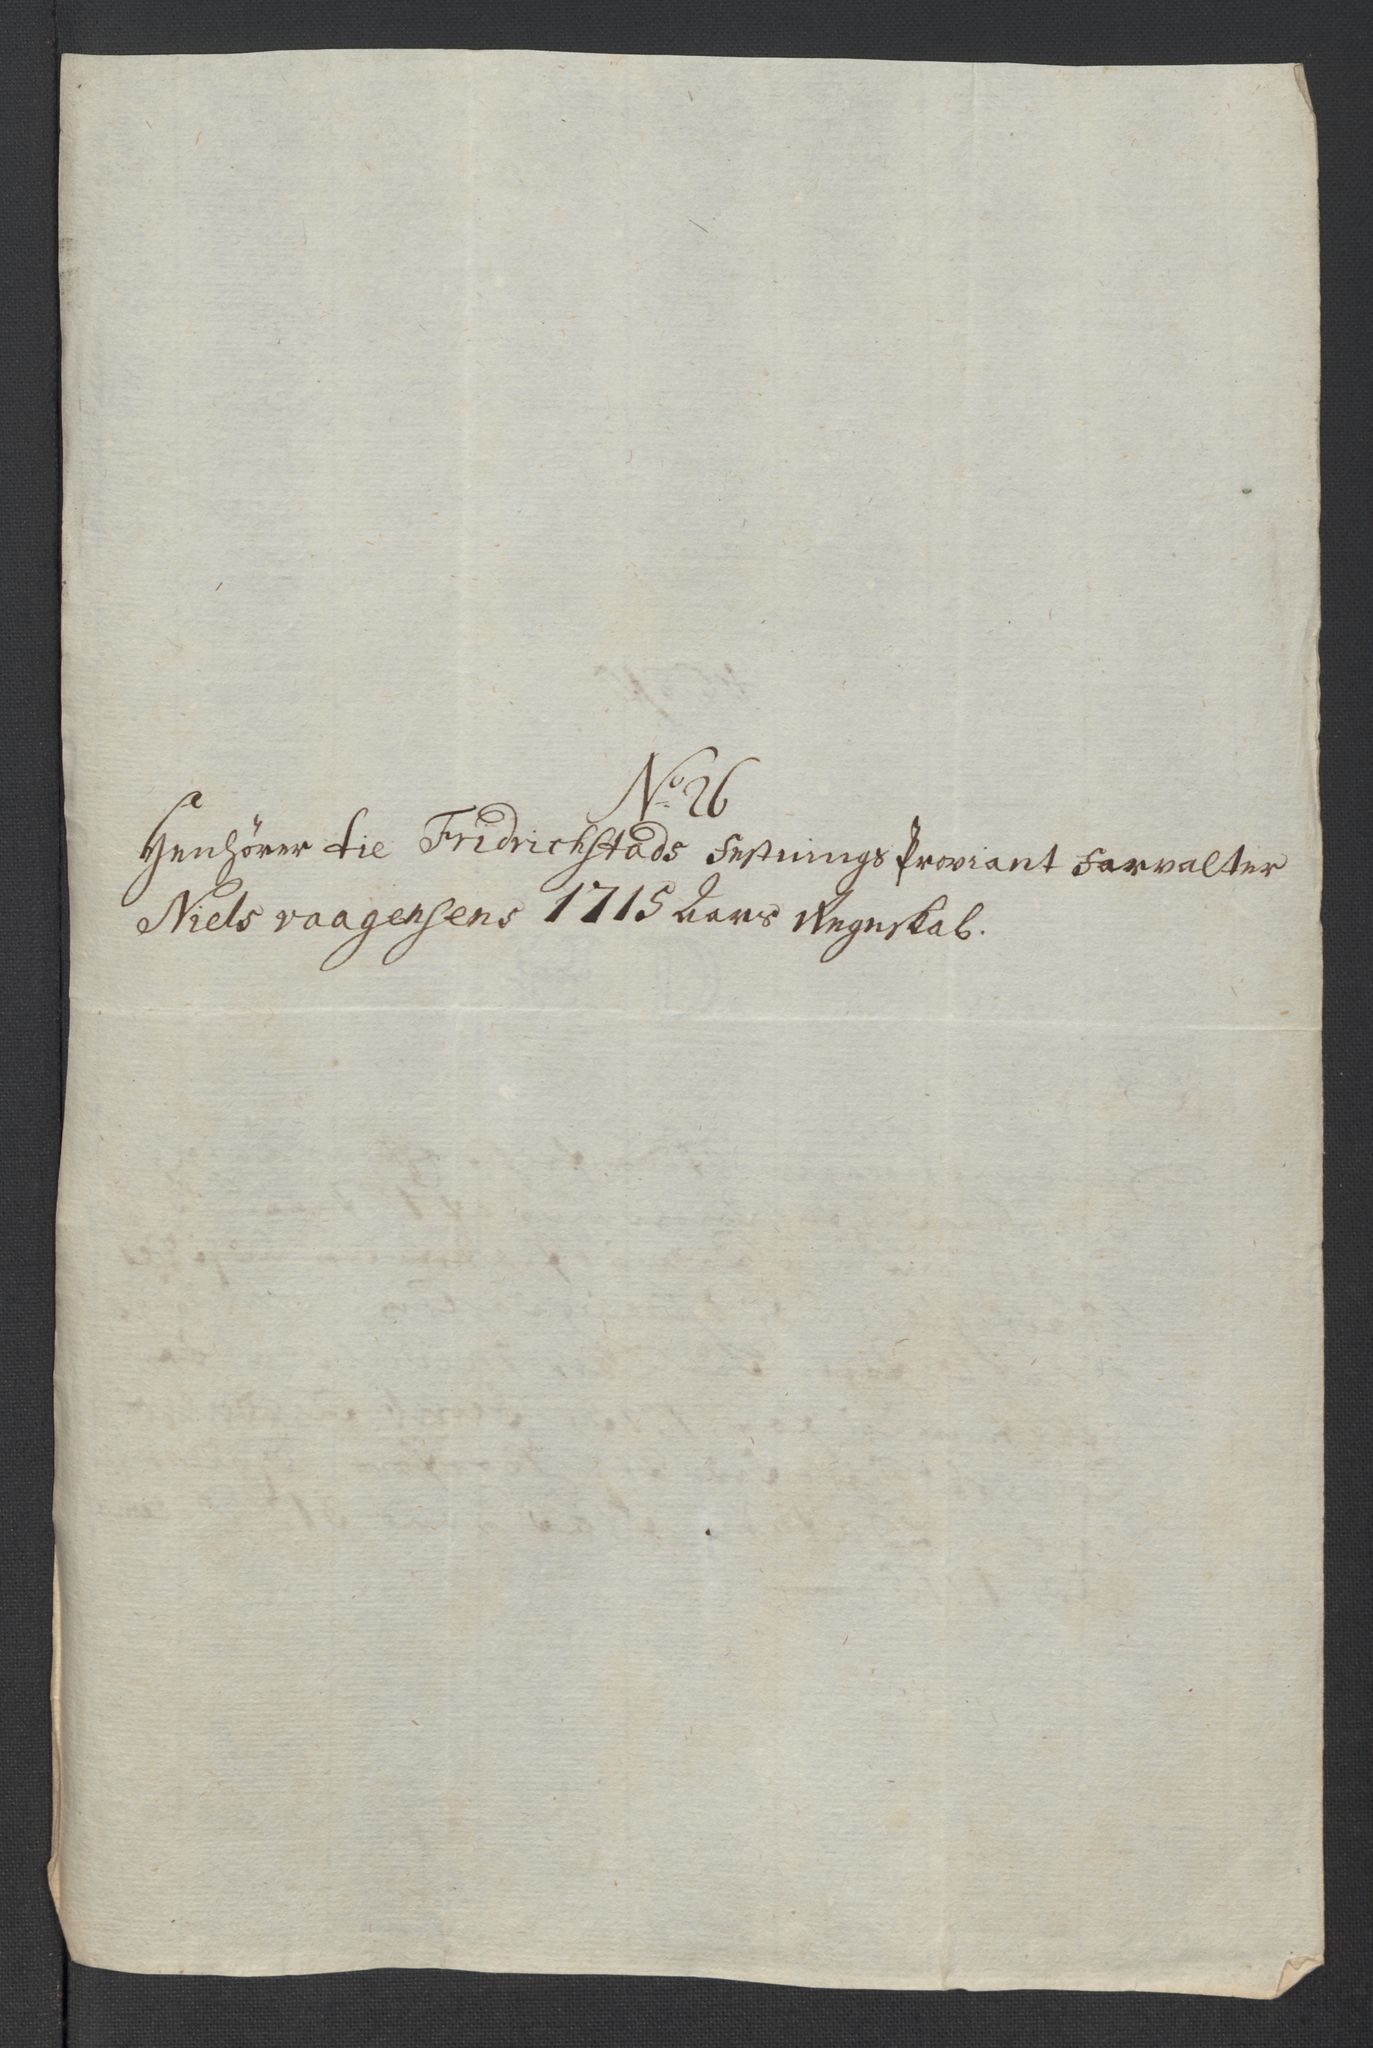 No. 26
Henhörer tie Fridrichstads Festnings Proviant Farvalter
Niels vaagensens 1715 Aars Regnskab.